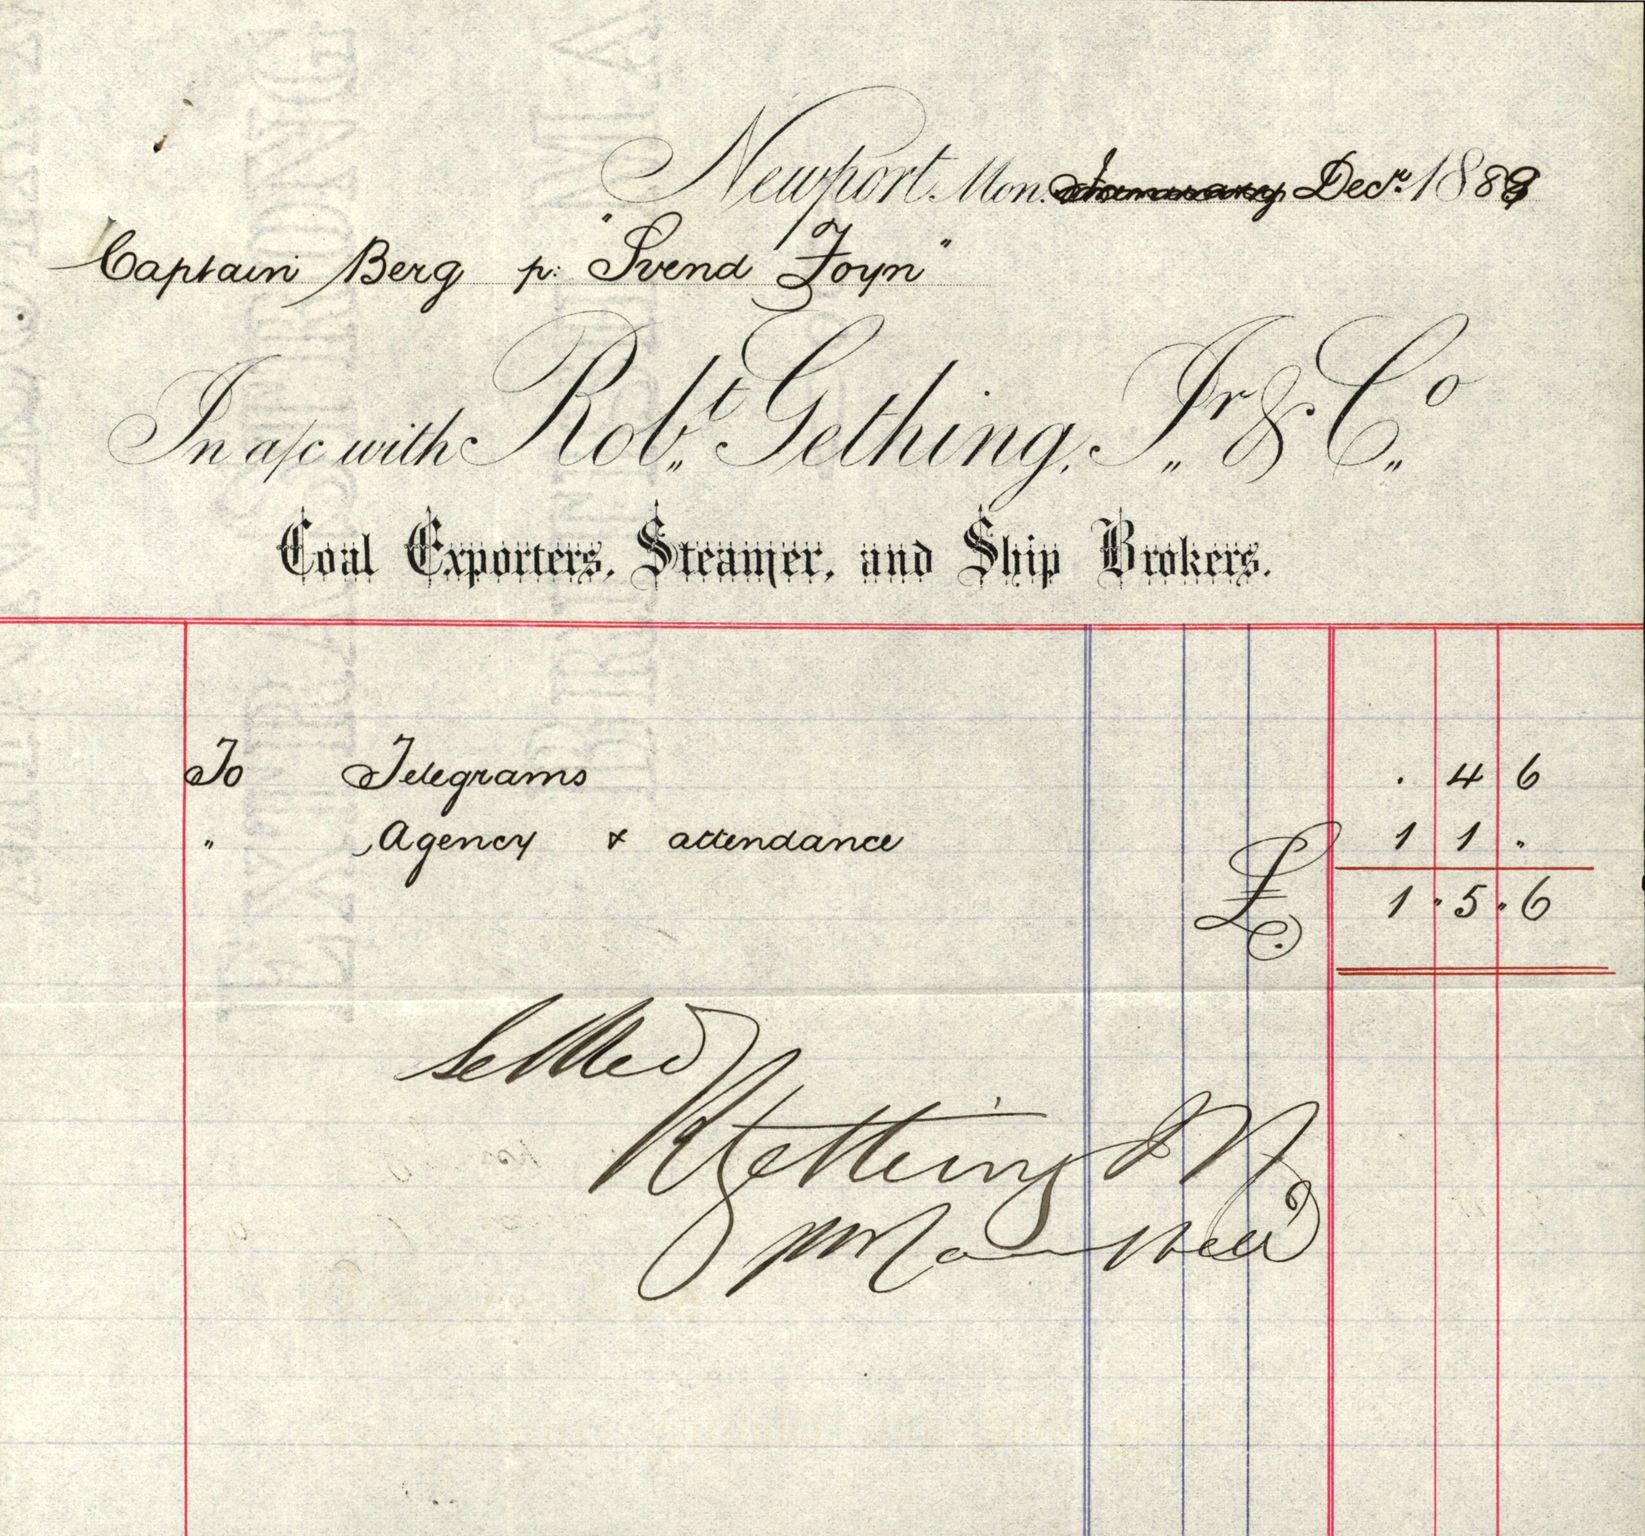 Newport, Mon. January Decr. 188
Captain Berg p: "Svend Foyn"
In a/c with Robt. Gething, Jr. & Co.
Coal Exporters, Steamer, and Ship Brokers.
To Telegrams . 4 6
" Agency & attendance 1 1 .
£ 1 . 5 . 6
Settled
R Gething